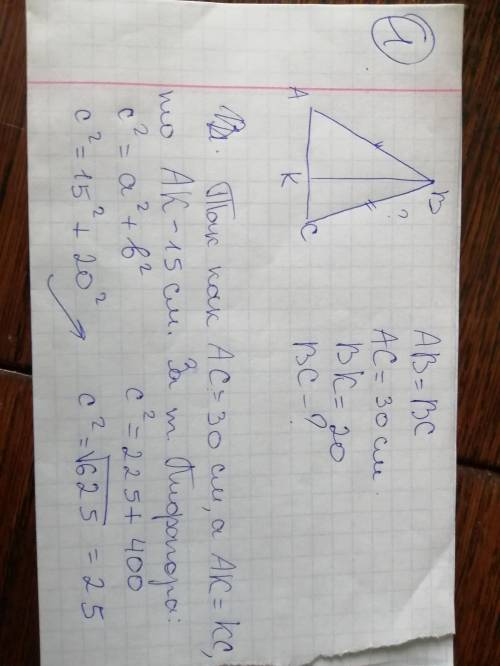 1
A
B
K
C
?
AB = BC
AC = 30 см.
BK = 20
BC - ?
Так как AC = 30 см, а AK = KC,
то AK - 15 см. За т. Пифагора:
c² = a² + b²
c² = 225 + 400
c² = 15² + 20²
c² = √625 = 25